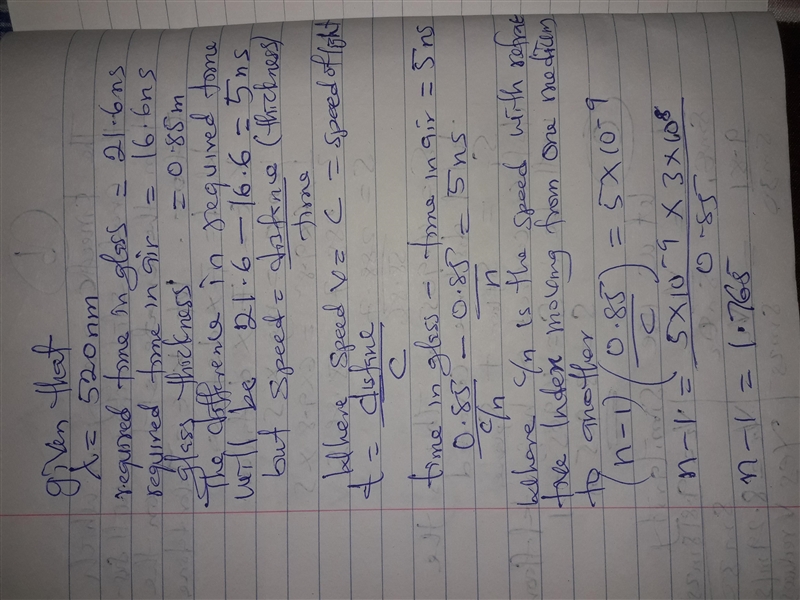 given that
λ = 520nm
required time in glass = 21.6ns
required time in air = 16.6ns
glass thickness = 0.85m
The difference in required time
will be 21.6 - 16.6 = 5ns
but speed = distance (thickness)
time
Where speed v = C = speed of light
t = distance
C
time in glass - time in air = 5ns
0.85 - 0.85 = 5ns.
c/n n
Where c/n is the speed with refrac
tive index moving from one medium
to another
(n-1) (0.85) = 5 x 10^-9
C
n-1 = 5 x 10^-9 x 3 x 10^8
0.85
n-1 = 1.765